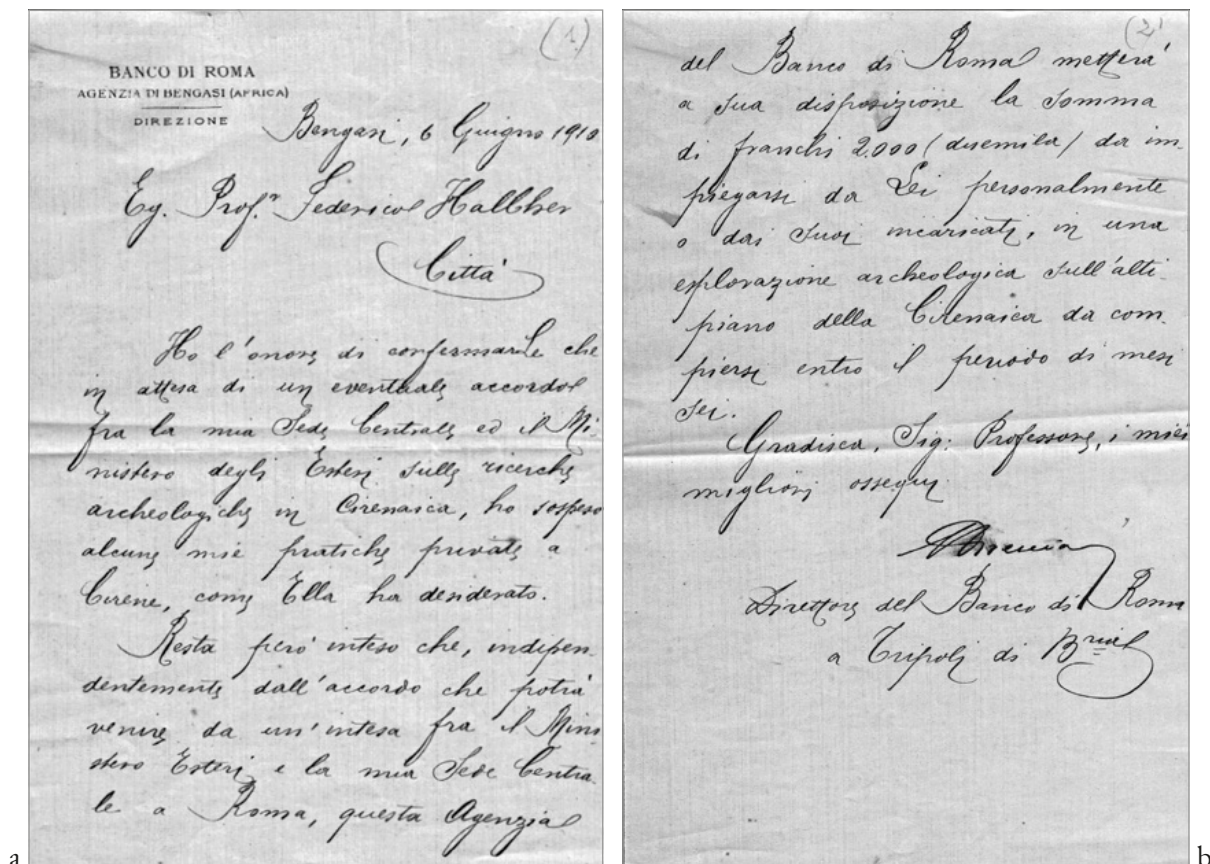 (1)
BANCO DI ROMA
AGENZIA DI BENGASI (AFRICA)
DIREZIONE
Bengasi, 6 Giugno 1910
Eg. Prof.r Federico Halbher
Città
Ho l'onore di confermarLe che
in attesa di un eventuale accordo
fra la mia Sede Centrale ed il Mi-
nistero degli Esteri sulle ricerche
archeologiche in Cirenaica, ho sospeso
alcune mie pratiche private a
Cirene, come Ella ha desiderato.
Resta però inteso che, indipen-
dentemente dall'accordo che potrà
venire da un'intesa fra il Mini
stero Esteri e la mia Sede Centra-
le a Roma, questa Agenzia
a
(2)
del Banco di Roma metterà
a sua disposizione la somma
di franchi 2.000 (duemila) da im-
piegarsi da Lei personalmente
o dai suoi incaricati, in una
esplorazione archeologica sull'alti-
piano della Cirenaica da com-
piersi entro il periodo di mesi
sei.
Gradisca, Sig. Professore, i miei
migliori ossequi
Direttore del Banco di Roma
a Tripoli di B.ria
b